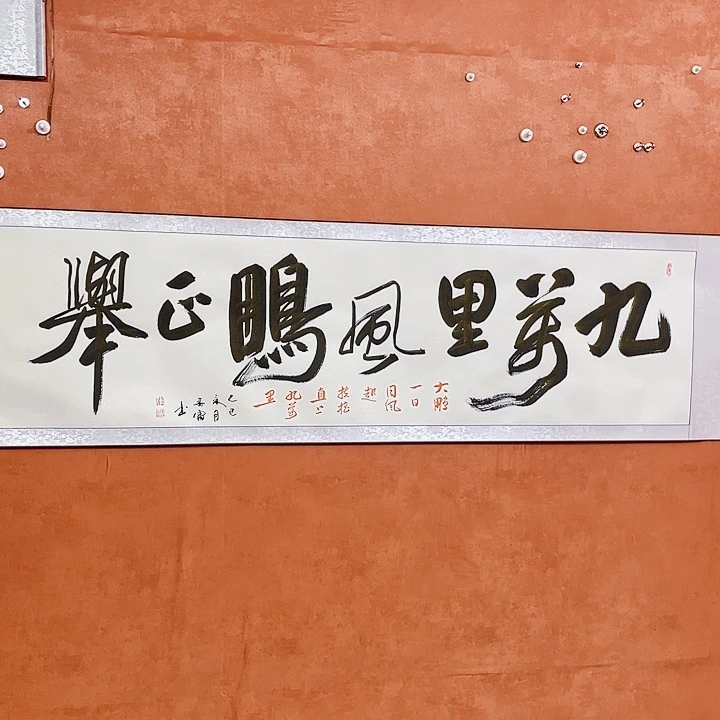 九萬里風鵬正舉
大鵬
一日
同風
起
扶摇
直上
九萬
里
乙巳
書